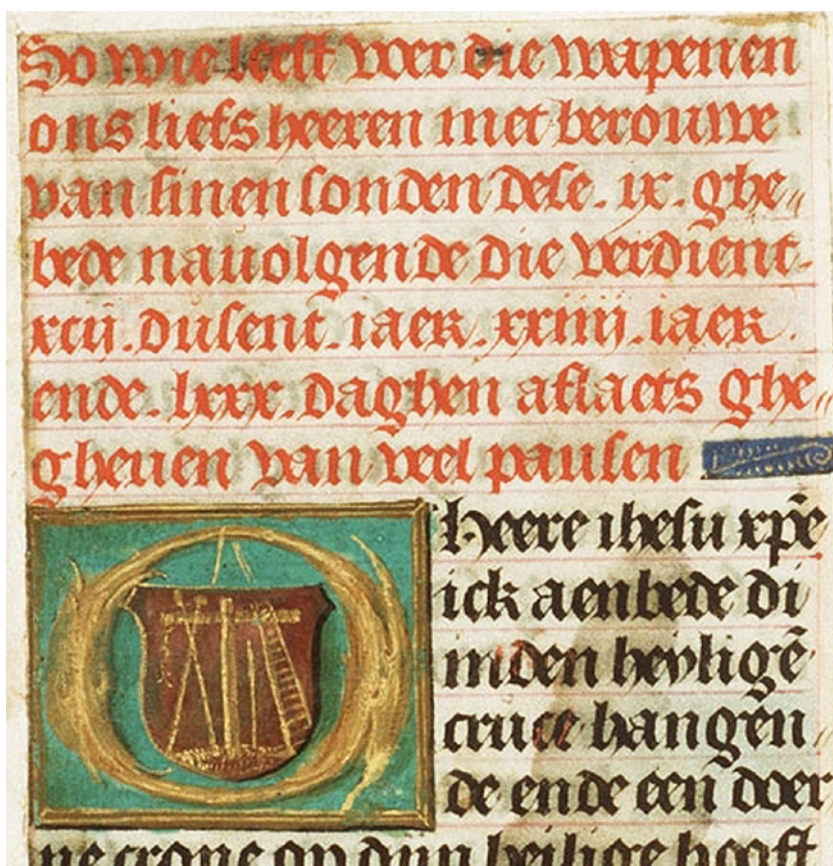 So wie leest voer die wapenen
ons liefs heeren met berouwe
van sinen sonden dese. ix. ghe„
bede nauolgende die verdient-
xcij. dusent. iaer. xxiiij. iaer.
ende. lxxx. daghen aflaets ghe„
gheuen van veel pausen
O heere ihesu xp̄e
ick aenbede di
inden heyligē
cruce hangen„
de ende een doer
ne crone op dijn heilige hooft